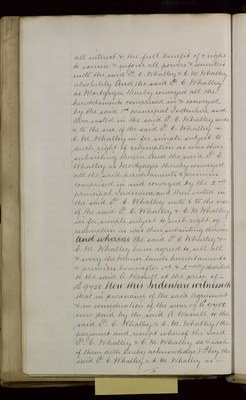 all interest & the full benefit of & right
to recover & enforce all powers & securities
unto the said P. C. Whalley & C. M. Whalley
absolutely And the said P. C. Whalley
as Mortgagee thereby conveyed all the
hereditaments comprised in & conveyed
by the said 1st principal Indenture and
then vested in the said P. C. Whalley unto
& to the use of the said P. C. Whalley &
C. M. Whalley in fee simple subject to
such right of redemption as was then
subsisting therein And the said P. C.
Whalley as Mortgagee thereby conveyed
all the said hereditaments & premises
comprised in and conveyed by the 2nd
principal Indenture and then vested in
the said P. C. Whalley unto & to the use
of the said P. C. Whalley & C. M. Whalley
in fee simple subject to such right of
redemption as was then subsisting therein
And whereas the said P. C. Whalley &
C. M. Whalley have agreed to sell all
& every the Manor lands hereditaments
& premises
to the said at the price of
Now this Indenture witnesseth
that in pursuance of the said Agreement
& in consideration of the sum of
now paid by the said to the
said P. C. Whalley & C. M. Whalley (the
payment and receipt whereof the said
P. C. Whalley & C. M. Whalley do & each
of them doth hereby acknowledge) They the
said P. C. Whalley & C. M. Whalley as